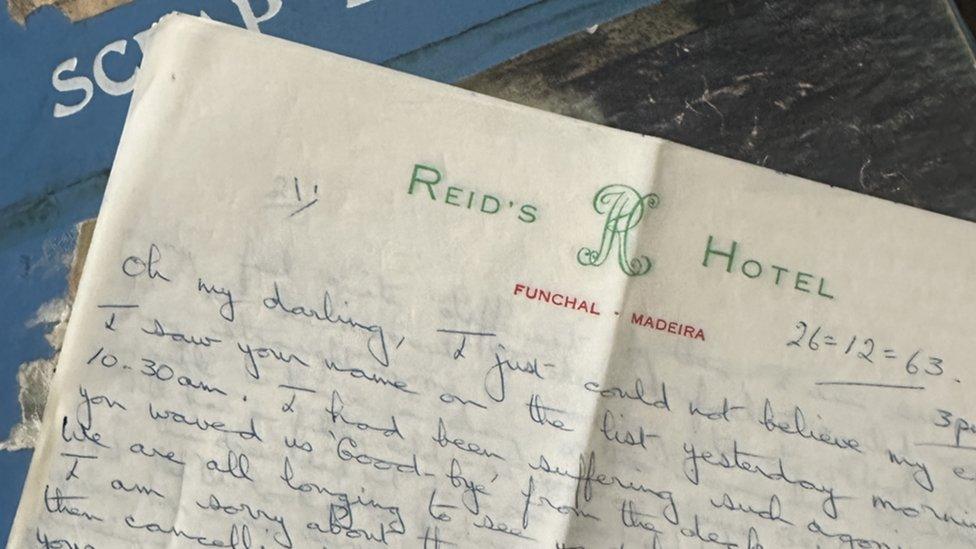 SCRAP
REID'S R HOTEL
FUNCHAL - MADEIRA
26=12=63.
3pm
Oh my darling, I just could not believe my
I saw your name on the list yesterday
10.30am. I had been suffering such
you waved us 'Good-bye' from the deck
We are all longing to see
I am sorry about
then